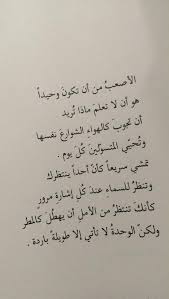 الأصعبُ من أن تكونَ وحيداً
هو أن لا تعلمَ ماذا تُريد
أن تجوبَ كالهواءِ الشوارعَ نفسها
وتُحيّي المتسوّلينَ كُلَ يوم .
تمشي سريعاً كأنّ أحداً ينتظرك
وتنظرُ للسماءِ عندَ كُلِ إشارةِ مرورٍ
كأنكَ تنتظرُ من الأملِ أن يهطُلَ كالمطر
ولكنَ الوحدةُ لا تأتي إلا طويلةً باردة .